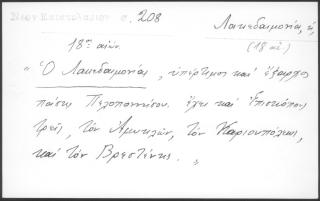 σ. 208
Λακεδαιμονία, ἡ,
18ος αἰών.
(18 αἰ.)
"Ὁ Λακεδαιμονίας, ὑπέρτιμος καὶ ἔξαρχος
πάσης Πελοποννήσου. ἔχει καὶ Ἐπισκόπους
τρεῖς, τὸν Ἀμυκλῶν, τὸν Καριουπόλεως,
καὶ τὸν Βρεσθένης. "